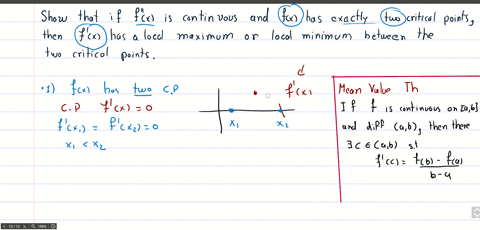 Show that if f''(x) is continuous and f(x) has exactly two critical points,
then f'(x) has a local maximum or local minimum between the
two critical points.
•1) f(x) has two C.P
C.P f'(x) = 0
f'(x₁) = f'(x₂) = 0
x₁ < x₂
f'(x)
x₁ x₂
Mean Value Th
If f is continuous on [a,b]
and diff (a,b), then there
∃ c ∈ (a,b) s.t
f'(c) = f(b) - f(a)
b - a